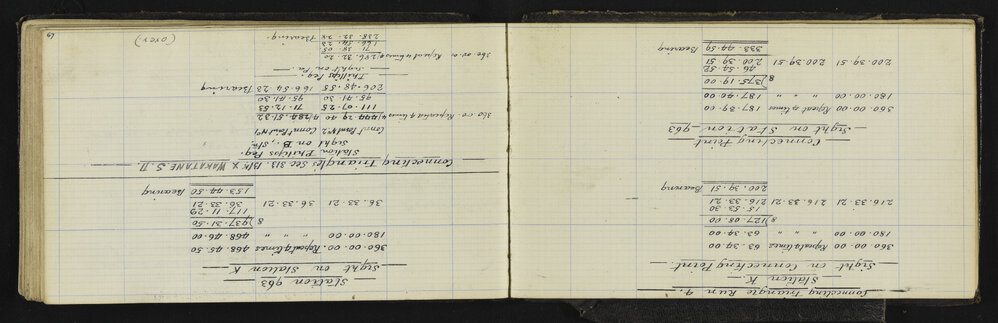 Connecting Triangle Run 4.
Station K.
Sight on Connecting Point.
360.00.00 Repeat 4 times 63.34.00
180.00.00 " " " 63.34.00
8)127.08.00
15.53.30
216.33.21 216.33.21 216.33.21
Bearing 200.39.51
Connecting Point
Sight on Station 963
360.00.00 Repeat 4 times 187.39.00
180.00.00 " " " 187.40.00
8)375.19.00
46.54.52
200.39.51 200.39.51 200.39.51
Bearing 333.44.59
Station 963
Sight on Station K
360.00.00. Repeat 4 times 468.45.50
180.00.00 " " " 468.46.00
8)937.31.50
117.11.29
36.33.21 36.33.21 36.33.21
Bearing 153.44.50
Connecting Triangles Sec 313. Blk X WAKATANE S.D.
Station Phillips Peg.
Sight on B. Stn.
Connt Point No2 Connt Point No1
360.00.00. Repeat 4 times 4)444.29.40 4)284.51.32
111.07.25 71.12.53
95.41.30 95.41.30
206.48.55 166.54.23 Bearing
Phillips Peg.
Sight on Pm.
360.00.00 Repeat 4 times 4)286.32.20
71.38.05
166.54.23
238.32.28 Bearing.
(over)